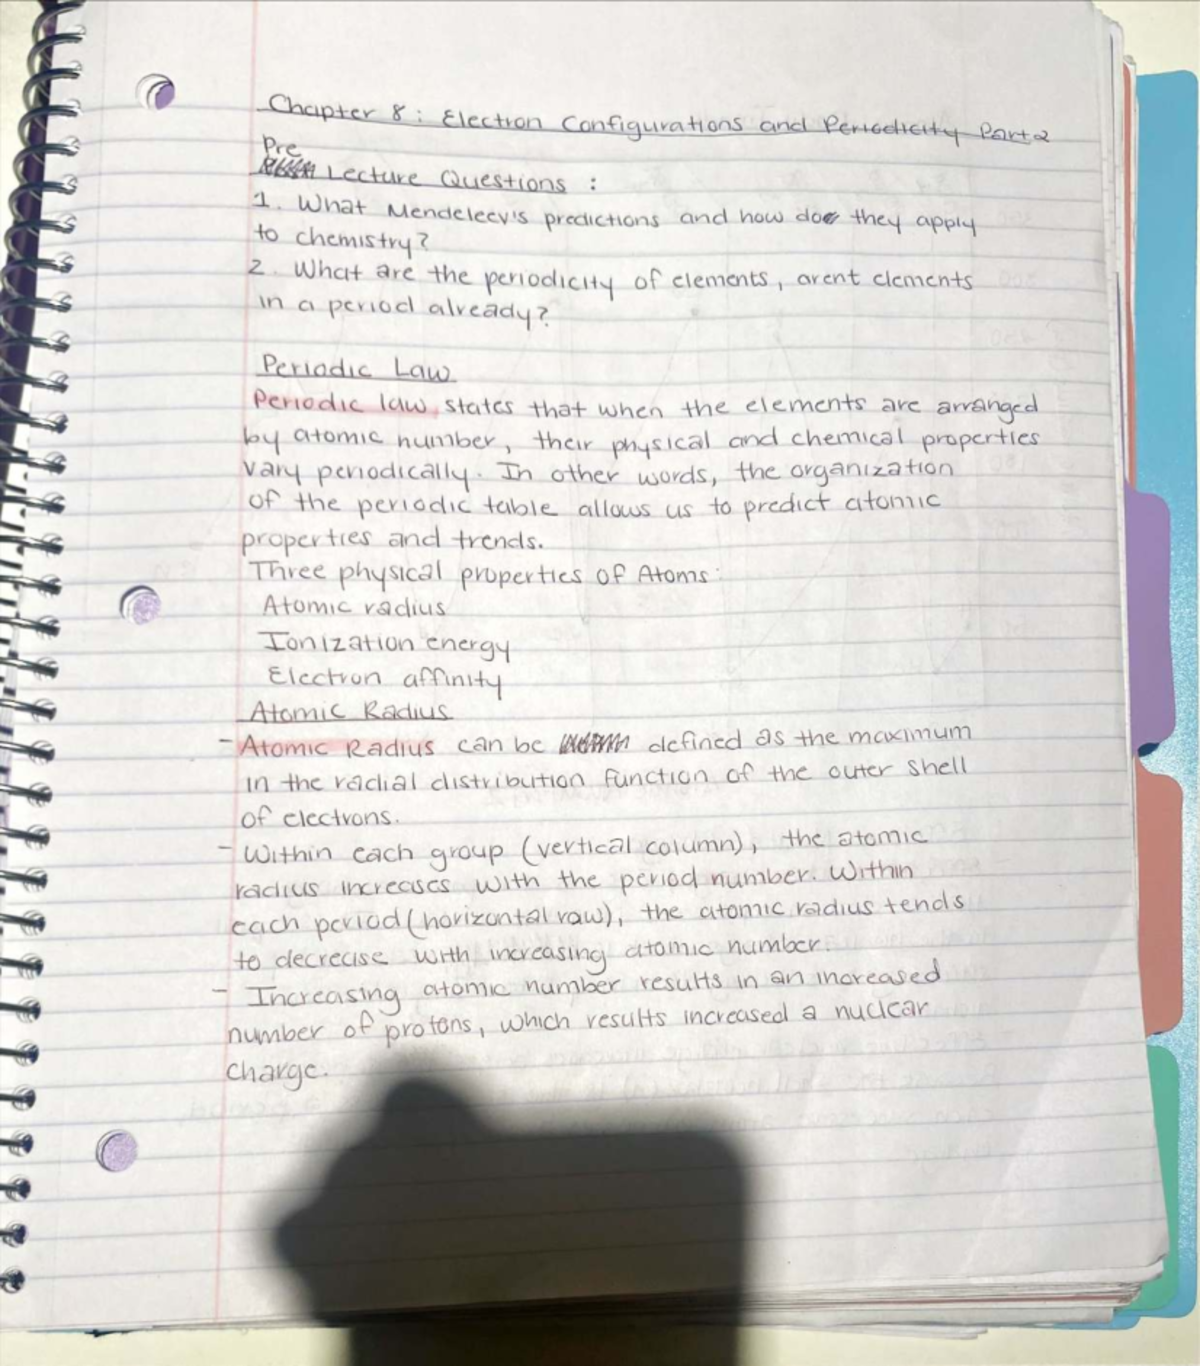 Chapter 8: Electron Configurations and Periodicity Part 2
Pre
Lecture Questions :
1. What Mendeleev's predictions and how do they apply
to chemistry?
2. What are the periodicity of elements, arent elements
in a period already?
Periodic Law
Periodic law, states that when the elements are arranged
by atomic number, their physical and chemical properties
vary periodically. In other words, the organization
of the periodic table allows us to predict atomic
properties and trends.
Three physical properties of Atoms:
Atomic radius
Ionization energy
Electron affinity
Atomic Radius
- Atomic Radius can be defined as the maximum
in the radial distribution function of the outer shell
of electrons.
- Within each group (vertical column), the atomic
radius increases with the period number. Within
each period (horizontal raw), the atomic radius tends
to decrease with increasing atomic number.
- Increasing atomic number results in an increased
number of protons, which results increased a nuclear
charge.